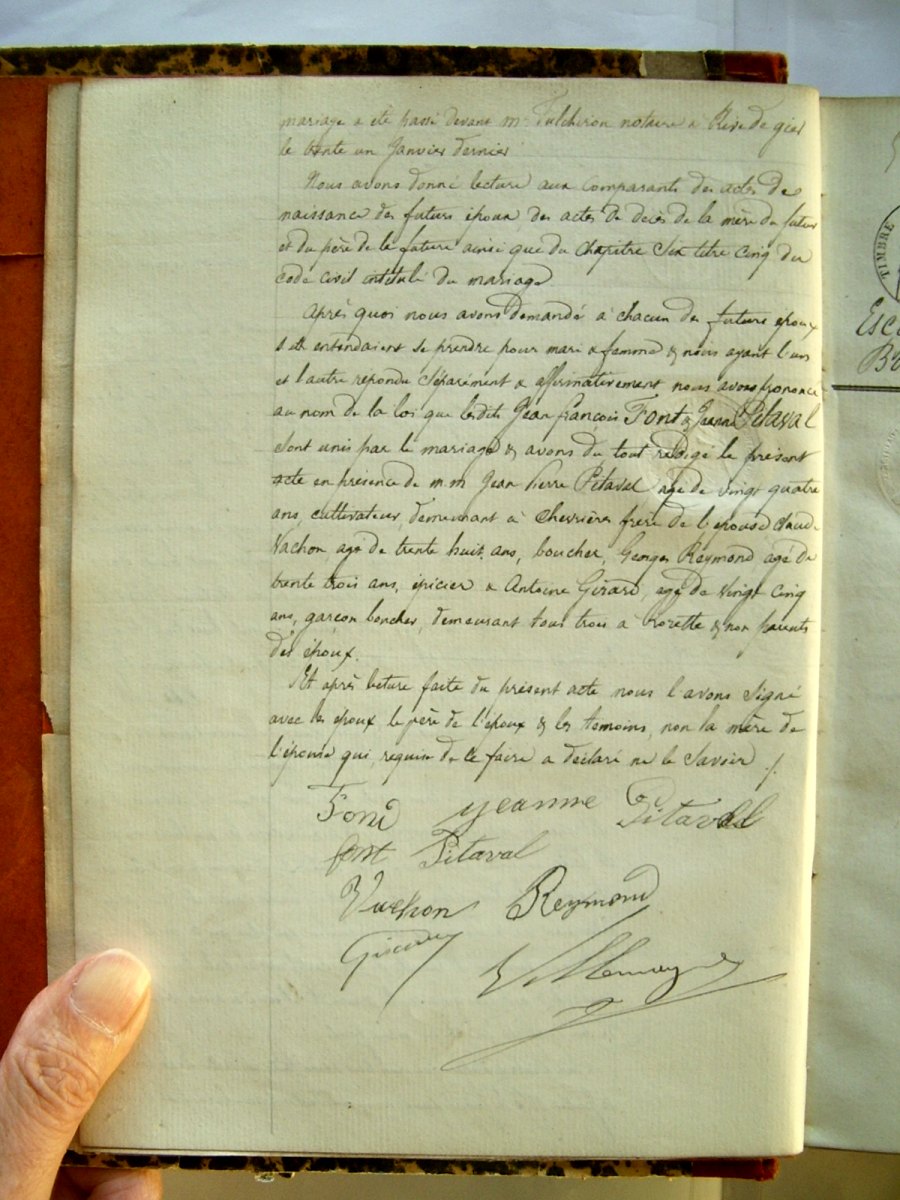 mariage a été passé devant Me Fulchiron notaire à Rive de gier
le trente un Janvier dernier
Nous avons donné lecture aux comparants des actes de
naissance des futurs époux, des actes de décès de la mère du futur
et du père de la future ainsi que du chapitre six titre cinq du
code civil intitulé du mariage
Après quoi nous avons demandé à chacun des futurs époux
s'ils entendaient se prendre pour mari & femme & nous ayant l'un
et l'autre répondu séparément & affirmativement nous avons prononcé
au nom de la loi que lesdits Jean François Font & Jeanne Pitaval
sont unis par le mariage & avons du tout rédigé le présent
acte en présence de m.m Jean Pierre Pitaval agé de vingt quatre
ans, cultivateur, demeurant à Chevrières frère de l'épouse Claude
Vachon agé de trente huit ans, boucher, Georges Reymond, agé de
trente trois ans, épicier & Antoine Girard, agé de vingt cinq
ans, garçon boucher, demeurant tous trois à Lorette & non parents
des époux.
Et après lecture faite du présent acte nous l'avons signé
avec les époux le père de l'époux & les témoins, non la mère de
l'épouse qui, requise de le faire a déclaré ne le savoir ./.
Font jeanne Pitaval
font Pitaval
Vachon Reymond
Girard
TIMBRE